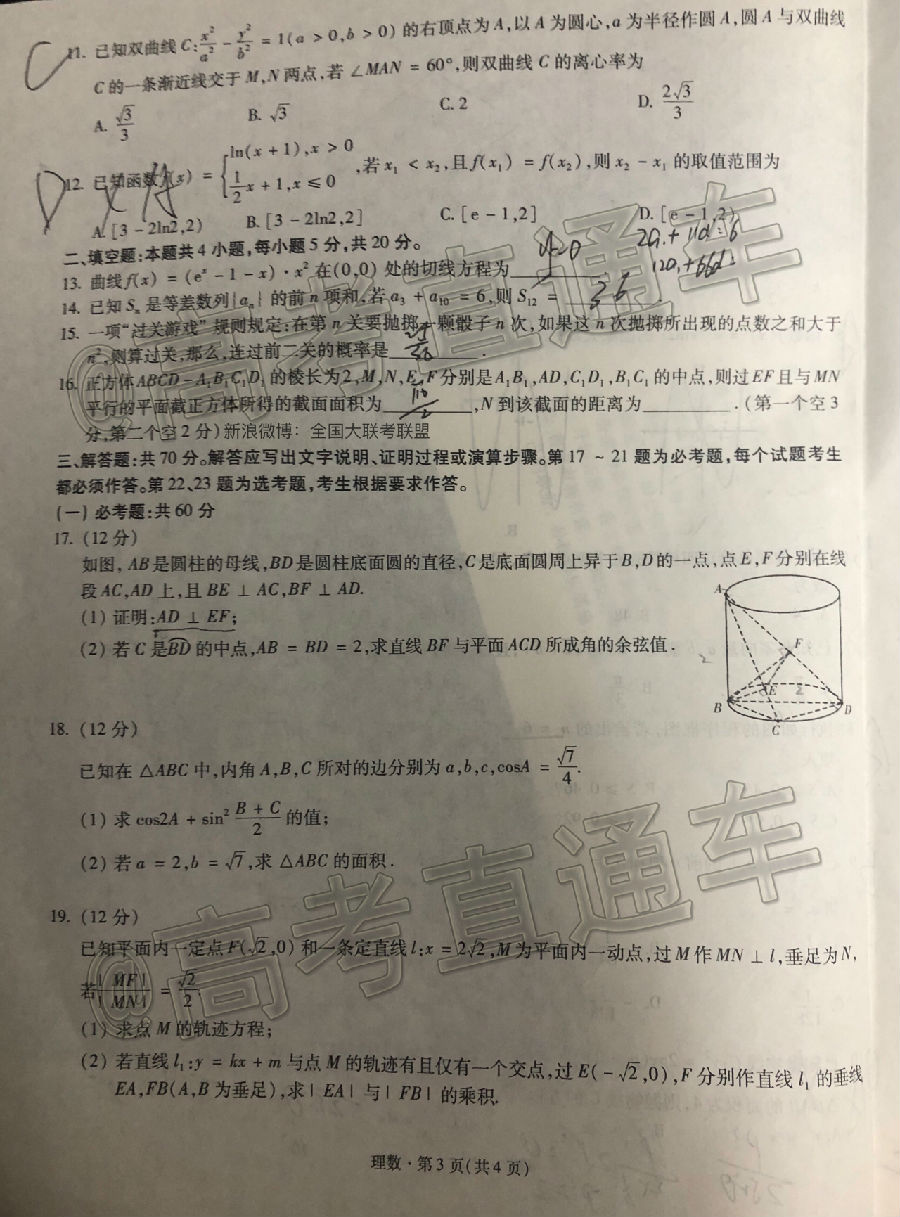 C
11. 已知双曲线 C: x²/a² - y²/b² = 1(a > 0, b > 0) 的右顶点为 A, 以 A 为圆心, a 为半径作圆 A, 圆 A 与双曲线
C 的一条渐近线交于 M, N 两点, 若 ∠MAN = 60°, 则双曲线 C 的离心率为
A. √3/3 B. √3 C. 2 D. 2√3/3
D
12. 已知函数 f(x) = { ln(x + 1), x > 0
1/2 x + 1, x ≤ 0 , 若 x₁ < x₂, 且 f(x₁) = f(x₂), 则 x₂ - x₁ 的取值范围为
A. [3 - 2ln2, 2) B. [3 - 2ln2, 2] C. [e - 1, 2] D. [e - 1, 2)
二、填空题: 本题共 4 小题, 每小题 5 分, 共 20 分。
13. 曲线 f(x) = (eˣ - 1 - x) · x² 在 (0,0) 处的切线方程为 y=0
2a₁+11d=6
12a₁+66d
14. 已知 Sₙ 是等差数列 {aₙ} 的前 n 项和, 若 a₃ + a₁₀ = 6, 则 S₁₂ = 36 .
15. 一项“过关游戏”规则规定: 在第 n 关要抛掷一颗骰子 n 次, 如果这 n 次抛掷所出现的点数之和大于
n², 则算过关, 那么, 连过前二关的概率是 .
16. 正方体 ABCD - A₁B₁C₁D₁ 的棱长为 2, M, N, E, F 分别是 A₁B₁, AD, C₁D₁, B₁C₁ 的中点, 则过 EF 且与 MN
平行的平面截正方体所得的截面面积为 , N 到该截面的距离为 . (第一个空 3
分, 第二个空 2 分) 新浪微博: 全国大联考联盟
三、解答题: 共 70 分。解答应写出文字说明、证明过程或演算步骤。第 17 ~ 21 题为必考题, 每个试题考生
都必须作答。第 22、23 题为选考题, 考生根据要求作答。
(一) 必考题: 共 60 分
17. (12 分)
如图, AB 是圆柱的母线, BD 是圆柱底面圆的直径, C 是底面圆周上异于 B, D 的一点, 点 E, F 分别在线
段 AC, AD 上, 且 BE ⊥ AC, BF ⊥ AD.
(1) 证明: AD ⊥ EF;
(2) 若 C 是 BD 的中点, AB = BD = 2, 求直线 BF 与平面 ACD 所成角的余弦值.
A
F
E
B
C
D
18. (12 分)
已知在 △ABC 中, 内角 A, B, C 所对的边分别为 a, b, c, cosA = √7/4.
(1) 求 cos2A + sin² (B + C)/2 的值;
(2) 若 a = 2, b = √7, 求 △ABC 的面积.
19. (12 分)
已知平面内一定点 F(√2, 0) 和一条定直线 l: x = 2√2, M 为平面内一动点, 过 M 作 MN ⊥ l, 垂足为 N,
若 |MF|/|MN| = √2/2.
(1) 求点 M 的轨迹方程;
(2) 若直线 l₁: y = kx + m 与点 M 的轨迹有且仅有一个交点, 过 E(-√2, 0), F 分别作直线 l₁ 的垂线
EA, FB(A, B 为垂足), 求 |EA| 与 |FB| 的乘积.
理数 · 第 3 页(共 4 页)
@高考直通车
@高考直通车